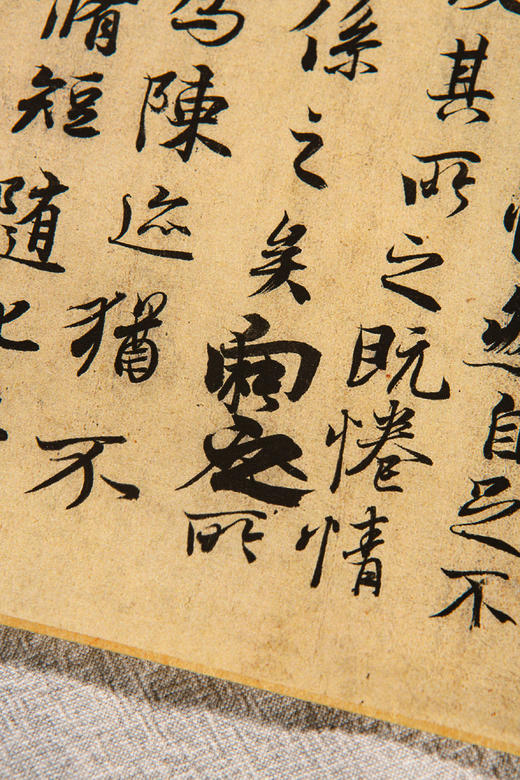 然自足不
其所之既惓情
係之矣向之所
為陳迹猶不
脩短随化